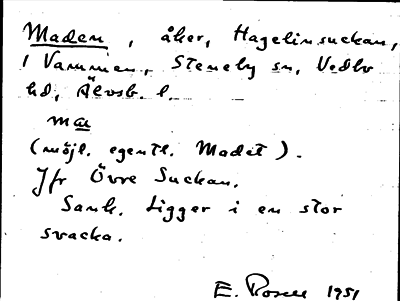 Maden, åker, Hagelinsuckan,
1 Vammen, Steneby sn, Vedbo
hd, Älvsb. l.
ma
(möjl. egentl. Madet).
Jfr Övre Suckan.
Sank. Ligger i en stor
svacka.
E. 1951